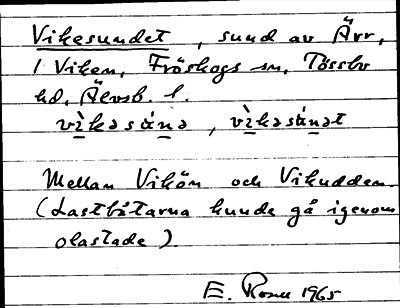 Vikesundet, sund av Ärr,
i Viken, Fröskogs sn, Tössbo
hd, Älvsb. l.
vìkəsúnə, vìkəsúnət
Mellan Vikön och Vikudden.
(Lastbåtarna kunde gå igenom
olastade).
E. 1965